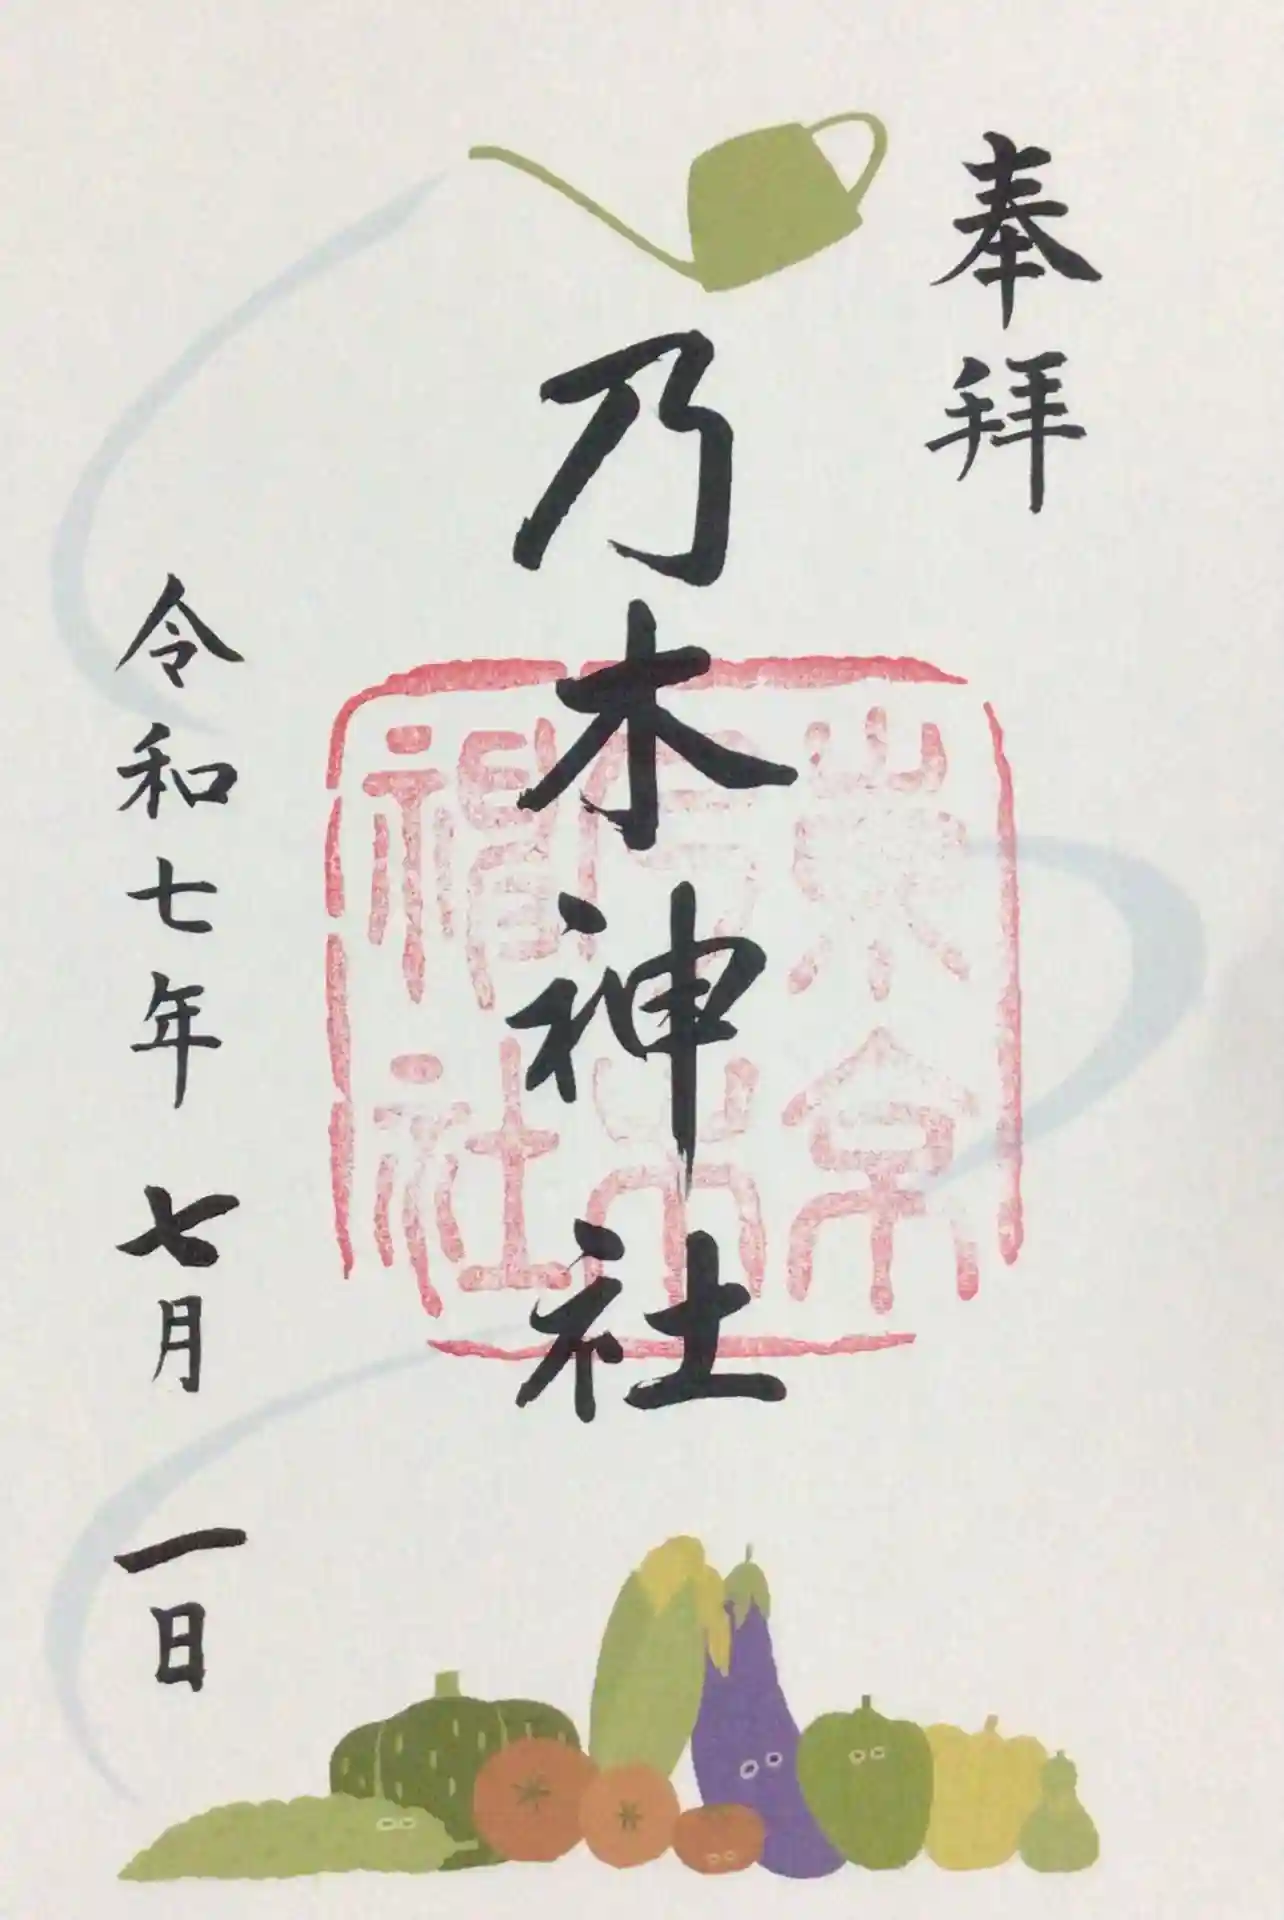 奉拝
乃木神社
東京
乃木
神社
令和七年七月一日